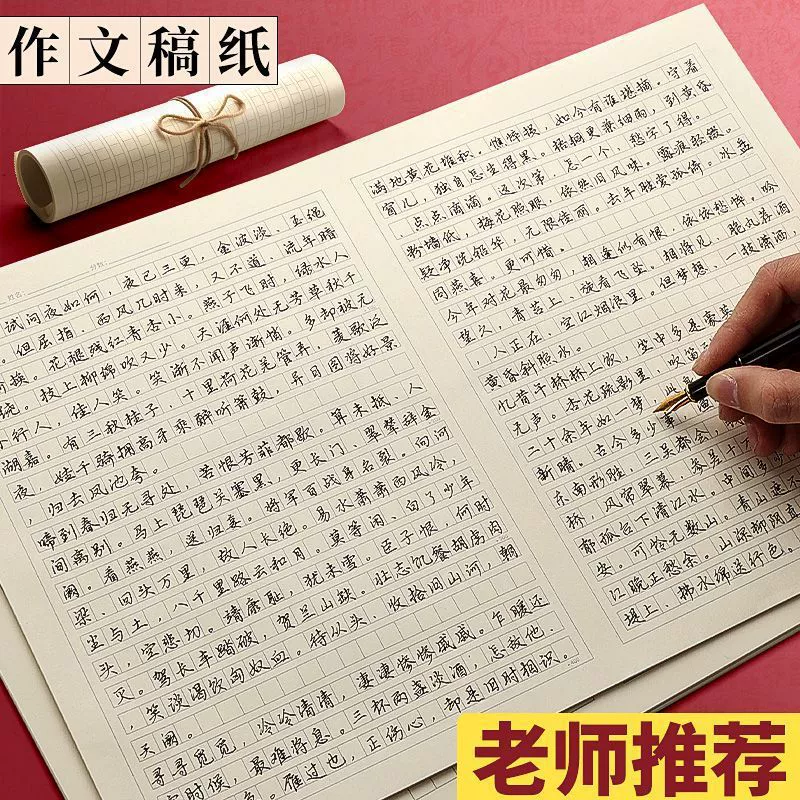 作文稿纸
姓名:
分数:
试问夜如何,夜已三更,金波淡、玉绳
。但屈指、西风几时来,又不道、流年暗
换。花褪残红青杏小。燕子飞时,绿水人
绕。枝上柳绵吹又少。天涯何处无芳草秋千
行人,佳人笑。笑渐不闻声渐悄。多却被无
湖嘉。有三秋桂子,十里荷花羌管弄,菱歌泛
夜,娃千骑拥高牙乘醉听箫鼓,异日图将好景
,归去凤池夸。
啼到春归无寻处,苦恨芳菲都歇。算未抵、人
间离别。马上琵琶关塞黑、更长门、翠辇辞金
阙。看燕燕,送归妾。将军百战身名裂。向河
梁、回头万里,故人长绝。易水萧萧西风冷,
尘与土,八千里路云和月。莫等闲、白了少年
头,空悲切。靖康耻,犹未雪。臣子恨,何时
灭。驾长车踏破,贺兰山缺。壮志饥餐胡虏肉
,笑谈渴饮匈奴血。待从头、收拾旧山河,朝
天阙。
寻寻觅觅,冷冷清清,凄凄惨惨戚戚。乍暖还
时候,最难将息。三杯两盏淡酒,怎敌他、
雁过也,正伤心,却是旧时相识。
满地黄花堆积。憔悴损,如今有谁堪摘。守着
窗儿,独自怎生得黑。梧桐更兼细雨,到黄昏
、点点滴滴。这次第,怎一个、愁字了得。
粉墙纸,梅花照眼,依然旧风味。露痕轻缀。
轻净洗铅华,无限佳丽。去年胜赏孤倚。水盘
同燕喜。更可惜。
今年对花最匆匆,相逢似有恨,依依愁悴。吟
望久,青苔上、旋看飞坠。相将见、脆丸荐酒
,人正在、空江烟浪里。但梦想、一枝潇洒,
黄昏斜照水。
忆昔午桥桥上饮,坐中多是豪英
无声。杏花疏影里,吹笛
二十余年如一梦,此身
新晴。古今多少事
东南形胜,三吴都会
桥,风帘翠幕,参差十万
郁孤台下清江水。中间多少
安。可怜无数山。青山遮不
江晚正愁余。山深
堤上、拂水绵送行色。
老师推荐